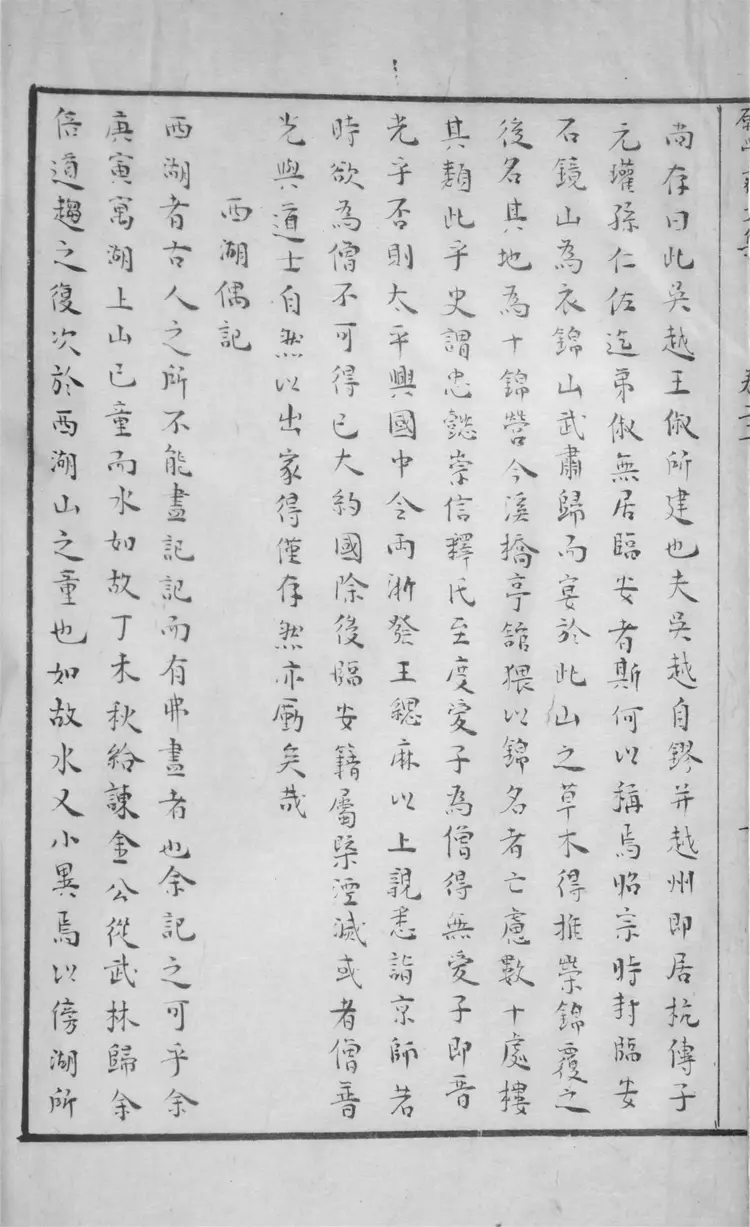 尚存曰此吳越王俶所建也夫吳越自鏐并越州即居杭傳子
元瓘孫仁佐迄弟俶無居臨安者斯何以稱焉昭宗時封臨安
石鏡山為衣錦山武肅歸而宴於此山之草木得推榮錦覆之
後名其地為十錦營今溪橋亭館猥以錦名者亡慮數十處樓
其類此乎史謂忠懿崇信釋氏至度愛子為僧得無愛子即晋
光乎否則太平興國中令兩浙發王緦麻以上親悉詣京師若
時欲為僧不可得已大約國除後臨安籍屬槩湮滅或者僧晋
光與道士自然以出家得僅存然亦厪矣哉
西湖偶記
西湖者古人之所不能盡記記而有弗盡者也余記之可乎余
庚寅寓湖上山已童而水如故丁未秋給諫金公從武林歸余
倍道趨之復次於西湖山之童也如故水又小異焉以傍湖所